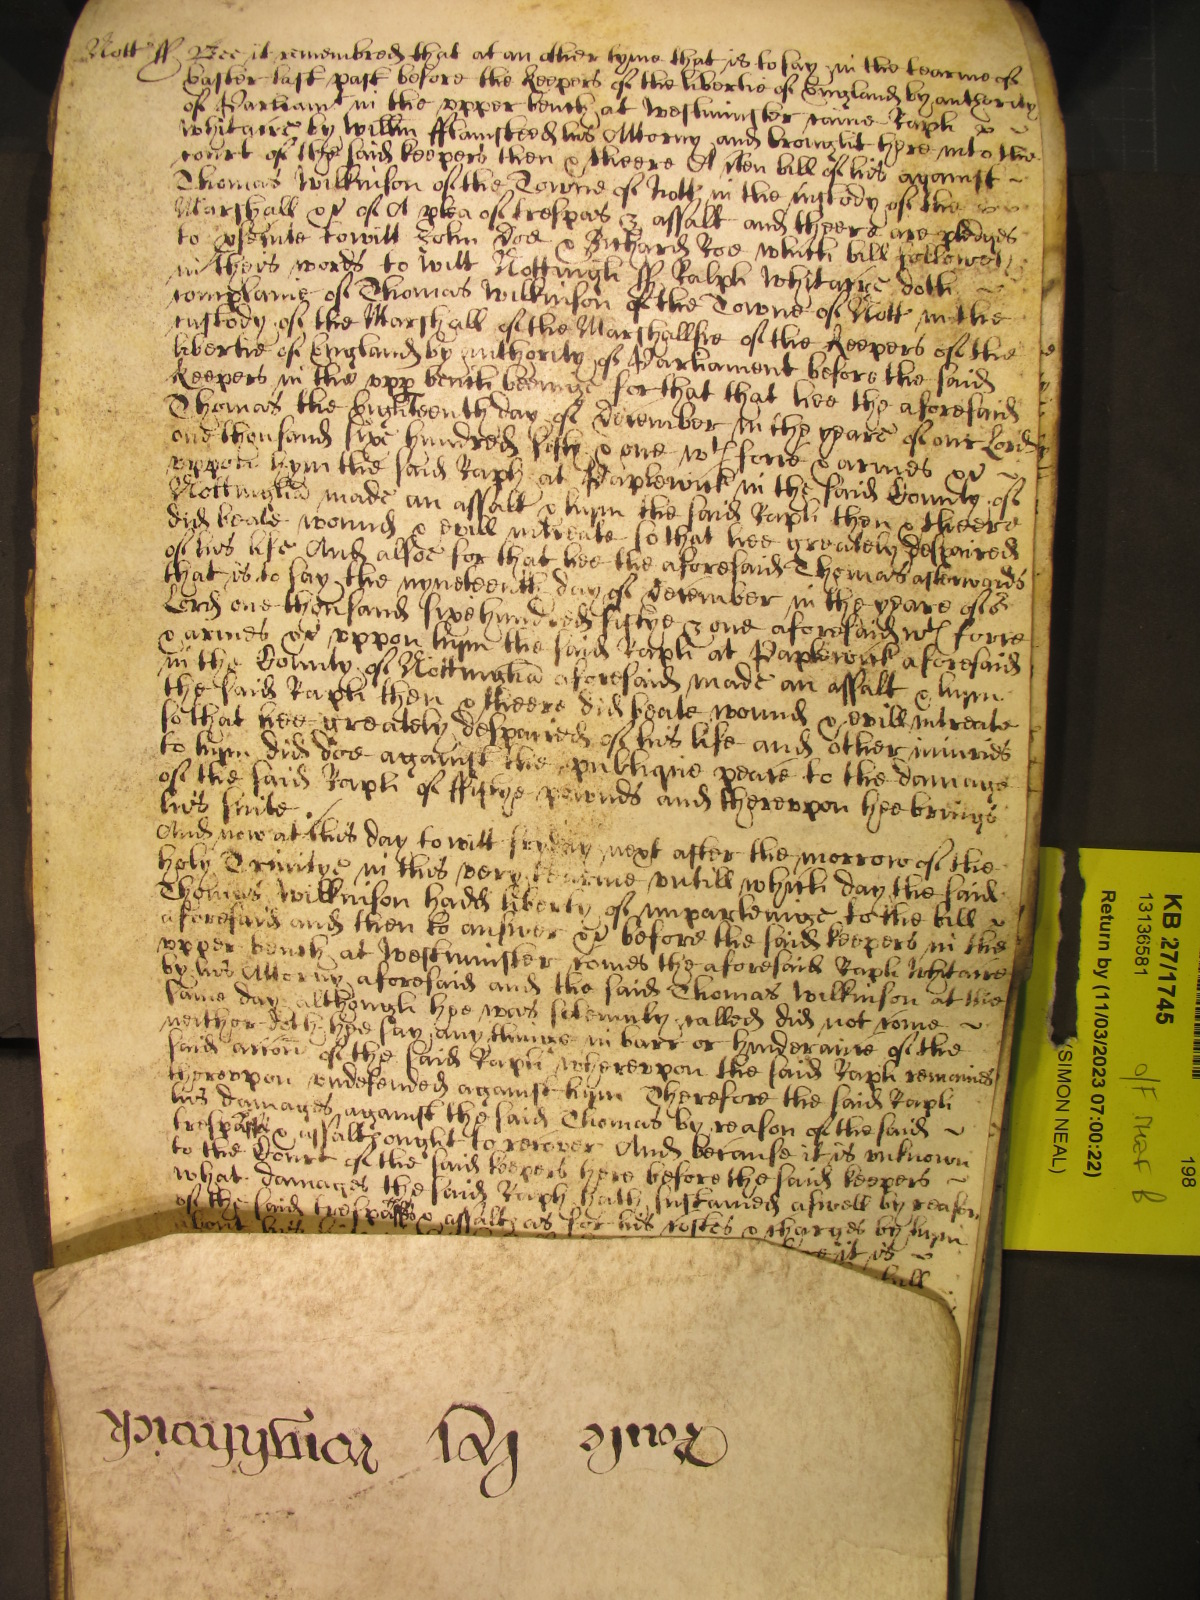 Nott ff Bee it remembred that at an other tyme that is to say in the tearme of
Easter last past before the Keepers of the libertie of England by authority
of Parliamt in the upper bench at Westminster came Raph
Whitacre by Willm fflamsteed his Attorny and brought here into the
court of the said keepers then & theere A bill of his against
Thomas Wilkinson of the Towne of Nott in the custody of the
Marshall &c of A plea of trespas & assalt and theere are pledges
to psecute towitt John Doe & Richard Roe which bill followeth
in theis words to witt Nottingh ff Ralph Whitacre doth
complaine of Thomas Wilkinson of the Towne of Nott in the
custody of the Marshall of the Marshallsie of the Keepers of the
libertie of England by authority of Parliament before the said
Keepers in the upp bench beeinge for that that hee the aforesaid
Thomas the Eighteenth day of December in the yeare of our Lord
one thousand sixe hundred fifty & one wth force & armes &c
uppon hym the said Raph at Paplewick in the said County of
Nottingha made an assalt & hym the said Raph then & theere
did beate wound & evill intreate so that hee greately despaired
of his life And alsoe for that hee the aforesaid Thomas afterwards
that is to say the nyneteenth day of December in the yeare of or
Lord one thousand sixe hundred fiftye & one aforesaid wth force
& armes &c uppon hym the said Raph at Paplewick aforesaid
in the County of Nottingha aforesaid made an assalt & hym
the said Raph then & theere did beate wound & evill intreate
so that hee greately despaired of his life and other iniuries
to hym did doe against the publique peace to the damage
of the said Raph of ffiftye pownds and thereupon hee brings
his suite
And now at this day to witt fryday next after the morrow of the
holy Trinitye in this very tearme untill which day the said
Thomas Wilkinson hadd liberty of imparleinge to the bill
aforesaid and then to answer &c before the said keepers in the
upper bench at Westminster comes the aforesaid Raph Whitacre
by his Attorny aforesaid and the said Thomas Wilkinson at the
same day although hee was solemnly called did not come
neither doth hee say any thinge in barr or hinderance of the
said accon of the said Raph whereupon the said Raph remaines
thereupon undefended against hym Therefore the said Raph
his damages against the said Thomas by reason of the said
trespasse & assalt ought to recover And because it is unknown
to the Court of the said keepers here before the said keepers
what damages the said Raph hath sustained aswell by reason
of the said trespasse & assalt as for his costes & charges by hym
about his
it is
bill
Roule Wightwick
KB 27/1745
13136581
Return by (11/03/2023 07:00:22)
(SIMON NEAL)
198